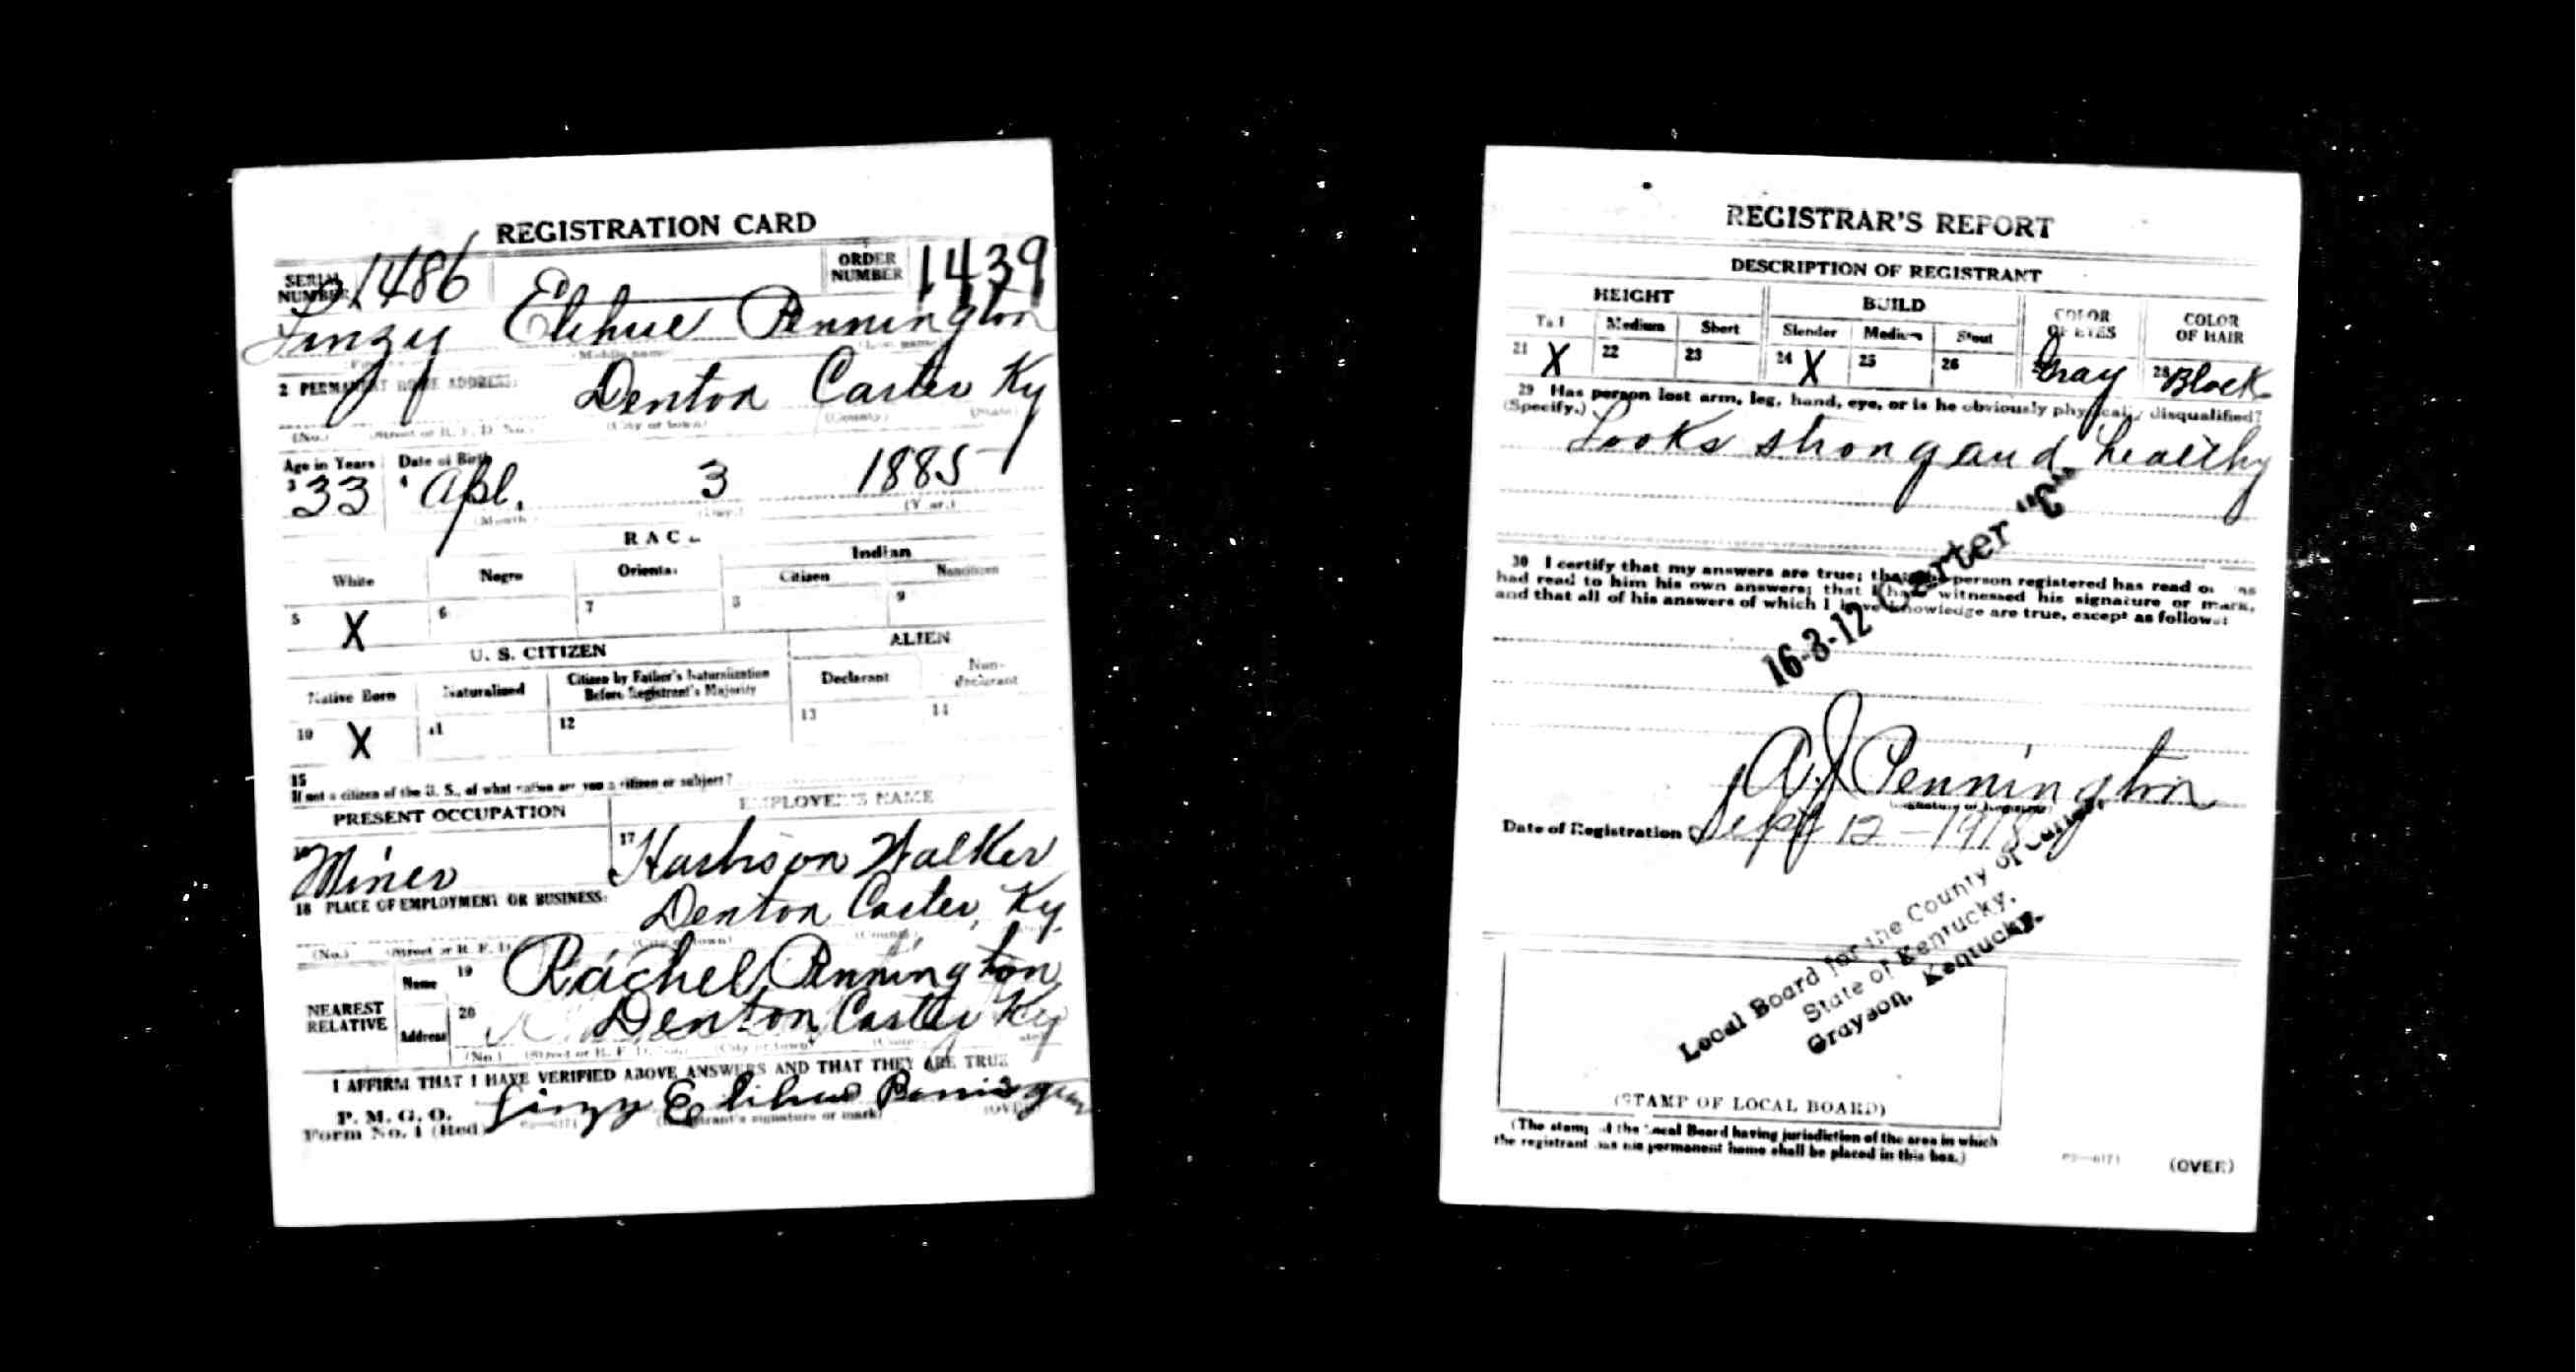 REGISTRATION CARD
SERIAL NUMBER 1486 ORDER NUMBER 1439
Linzy Elihue Pennington
(Middle name) (Last name)
2 PERMANENT HOME ADDRESS:
Denton Carter Ky
(No.) (Street or R. F. D. No.) (City or town) (County) (State)
Age in Years Date of Birth
3 33 4 Apl. 3 1885
(Month) (Day.) (Year.)
RACE
White Negro Oriental Indian
Citizen Noncitizen
5 X 6 7 8 9
U. S. CITIZEN ALIEN
Native Born Naturalized Citizen by Father's Naturalization Before Registrant's Majority Declarant Non-declarant
10 X 11 12 13 14
15
If not a citizen of the U. S., of what nation are you a citizen or subject?
PRESENT OCCUPATION EMPLOYER'S NAME
16 Miner 17 Harbison Walker
18 PLACE OF EMPLOYMENT OR BUSINESS:
Denton Carter, Ky.
(No.) (Street or R. F. D. (City or town) (County)
NEAREST RELATIVE
Name 19 Rachel Pennington
Address 20 Denton Carter Ky
(No.) (Street or R. F. D. No.) (City or town)
I AFFIRM THAT I HAVE VERIFIED ABOVE ANSWERS AND THAT THEY ARE TRUE
P. M. G. O.
Form No. 1 (Red) Linzy Elihue
(Registrant's signature or mark) (OVER)
REGISTRAR'S REPORT
DESCRIPTION OF REGISTRANT
HEIGHT BUILD COLOR OF EYES COLOR OF HAIR
Tall Medium Short Slender Medium Stout
21 X 22 23 24 X 25 26 27 Gray 28 Black
29 Has person lost arm, leg, hand, eye, or is he obviously physically disqualified?
(Specify.) Looks strong and healthy
30 I certify that my answers are true; that the person registered has read or has
had read to him his own answers; that I have witnessed his signature or mark,
and that all of his answers of which I have knowledge are true, except as follows:
16-3-12 Carter "C"
A J Pennington
(Signature of Registrar)
Date of Registration Sept 12 - 1918
Local Board for the County of Carter
State of Kentucky,
Grayson, Kentucky.
(STAMP OF LOCAL BOARD)
(The stamp of the Local Board having jurisdiction of the area in which
the registrant has his permanent home shall be placed in this box.)
(OVER)